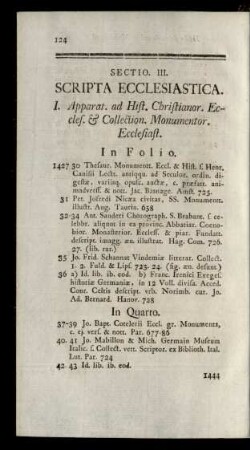 124
SECTIO. III.
SCRIPTA ECCLESIASTICA.
I. Apparat. ad Hist. Christianor. Ec-
cles. & Collection. Monumentor.
Ecclesiast.
In Folio.
1427 30 Thesaur. Monument. Eccl. & Hist. s. Henr.
Canisii Lect. antiqu. ad Seculor. ordin. di-
gestæ, variisq. opusc. auctæ, c. præfatt. ani-
madverss. & nott. Jac. Basnage. Amst. 725.
31 Pet. Joffredi Nicæa civitas, SS. Monument.
illustr. Aug. Taurin. 658
32-34 Ant. Sanderi Chorograph. S. Brabant. s. ce-
lebbr. aliquot in ea provinc. Abbatiar. Coeno-
bior. Monasterior. Eccless. & piar. Fundatt.
descript. imagg. æn. illustrat. Hag. Com. 726.
27. (lib. rar.)
35 Jo. Frid. Schannat Vindemiæ litterar. Collect.
1. 2. Fuld. & Lips. 723. 24. (fig. æn. defunt.)
36 a) Id. lib. ib. eod. b) Franc. Irenici Exeges.
historiæ Germaniæ, in 12 Voll. divisa. Acced.
Conr. Celtis descript. urb. Norimb. cur. Jo.
Ad. Bernard. Hanov. 728
In Quarto.
37-39 Jo. Bapt. Cotelerii Eccl. gr. Monumenta,
c. ej. vers. & nott. Par. 677-86
40. 41 Jo. Mabillon & Mich. Germain Museum
Italic. s. Collect. vett. Scriptor. ex Biblioth. Ital.
Lut. Par. 724
42. 43 Id. lib. ib. eod.
1444